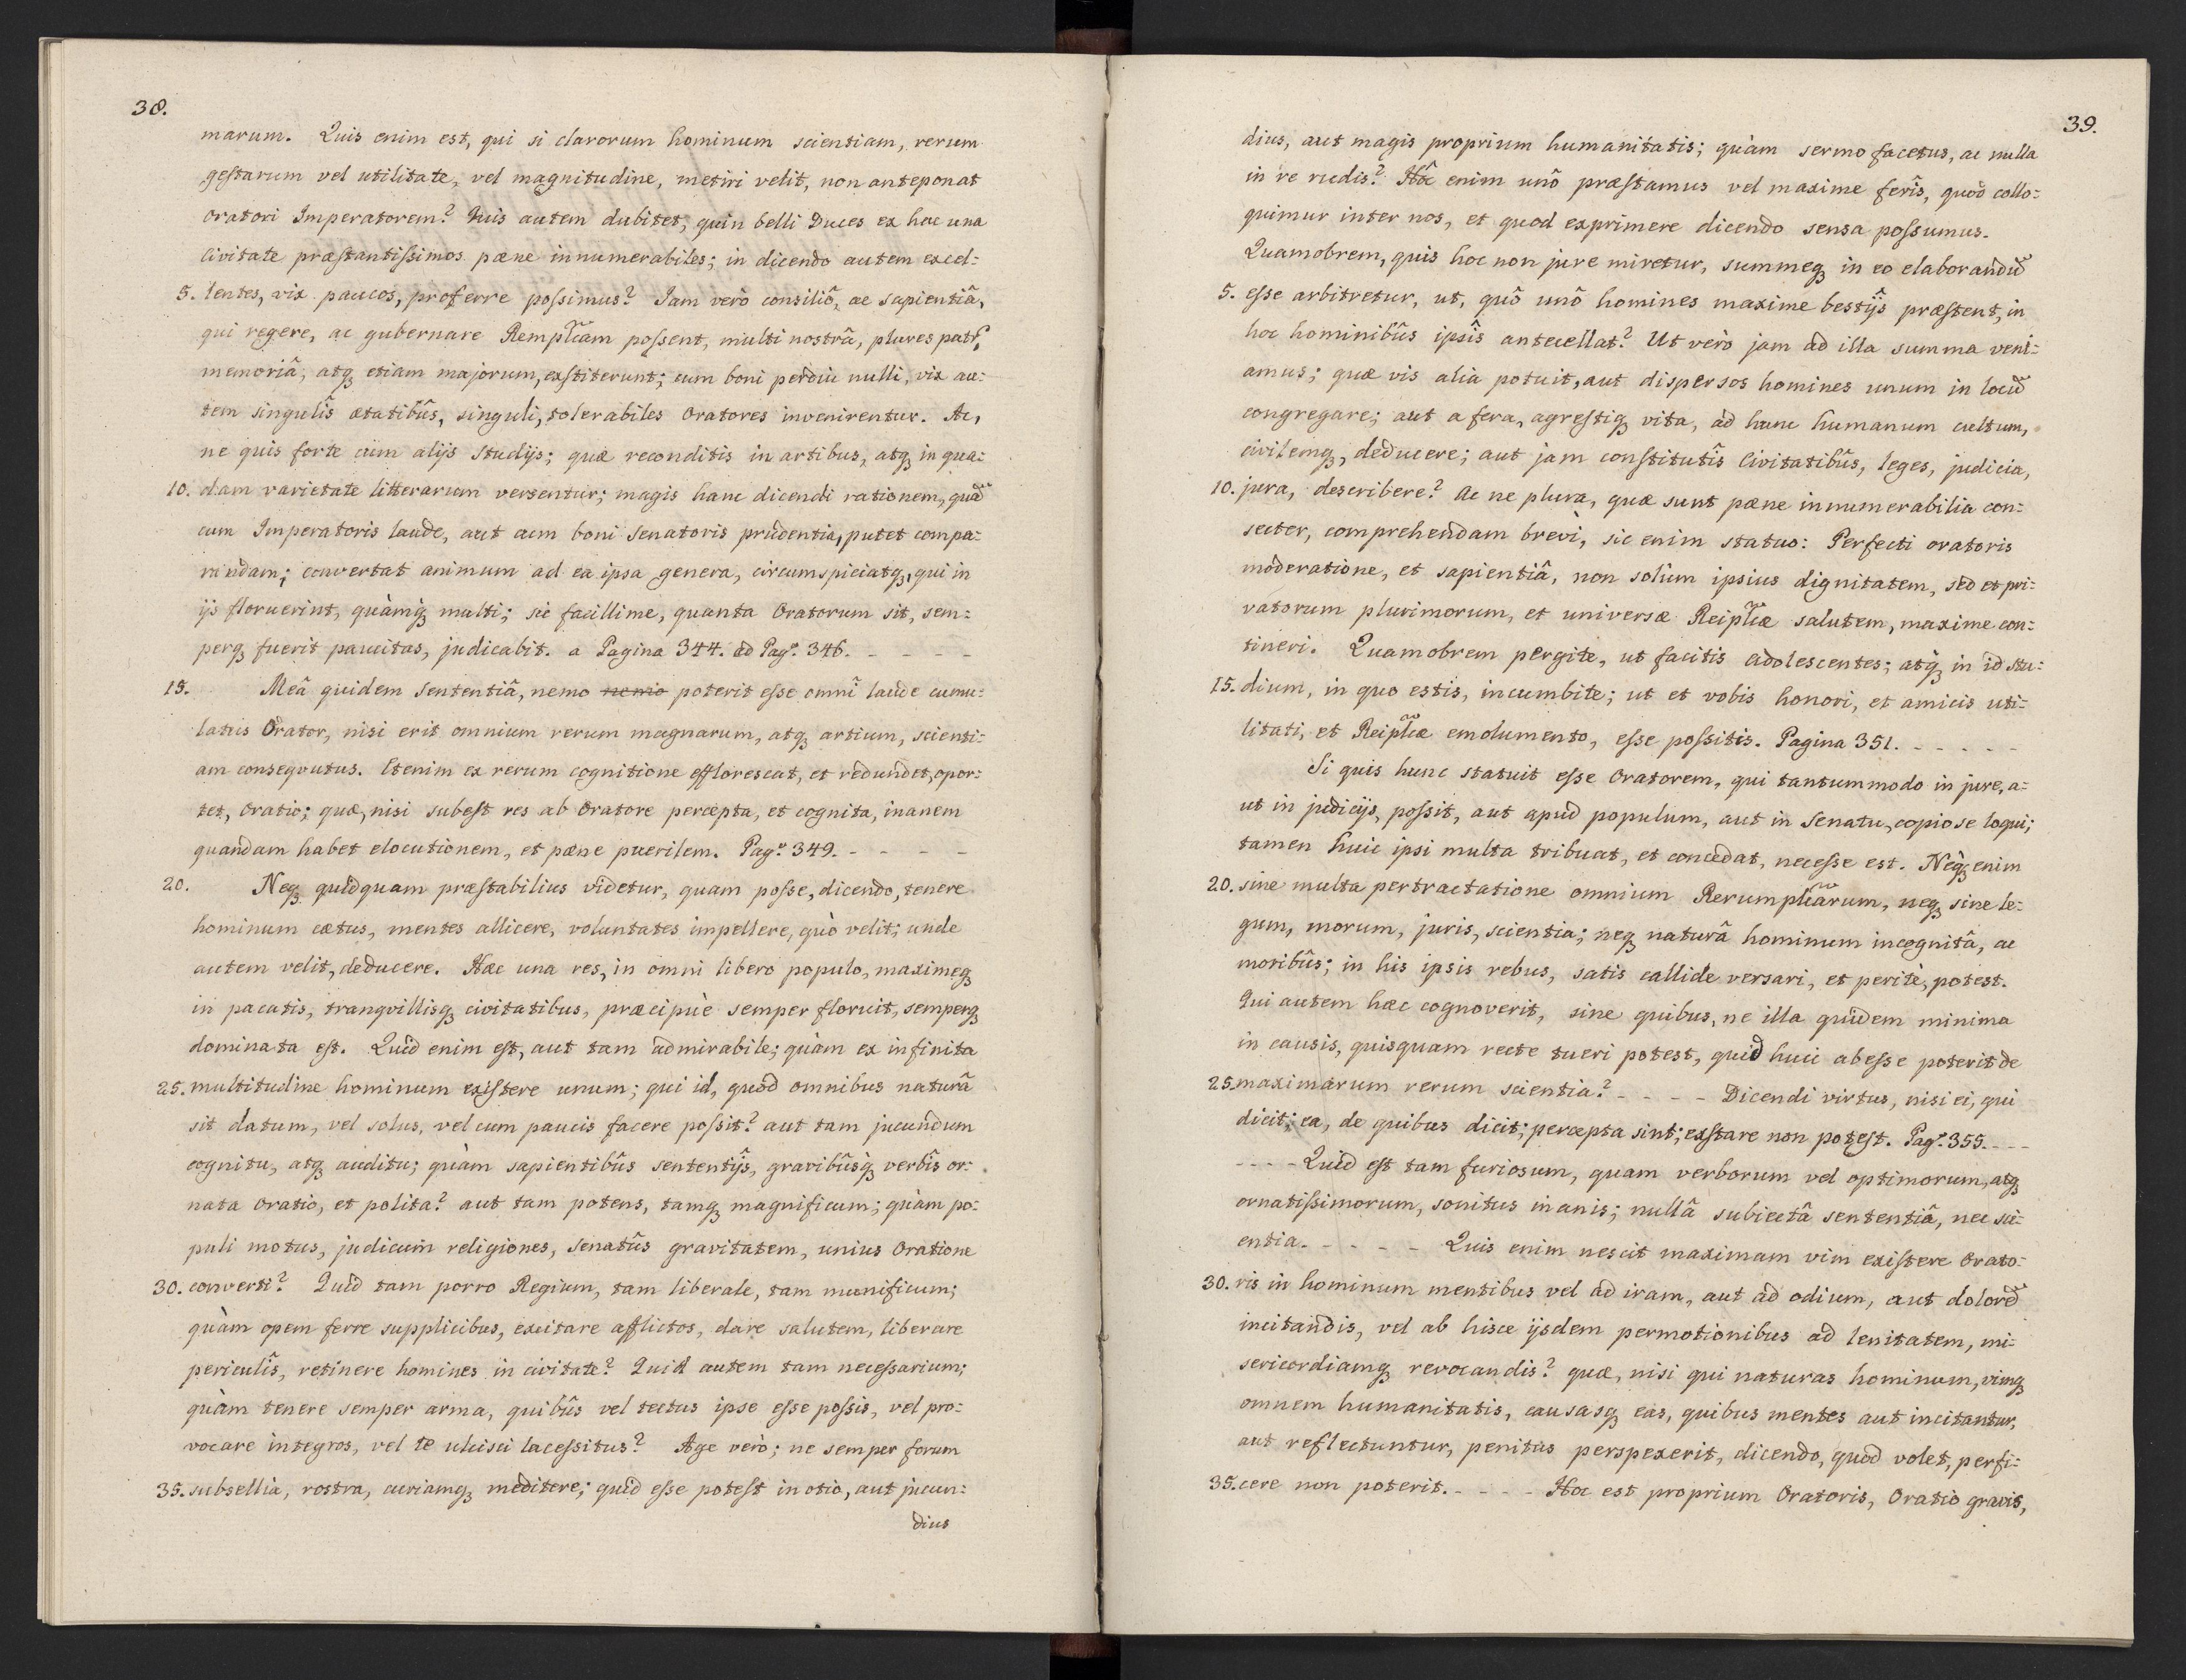 38.
marum. Quis enim est, qui si clarorum hominum scientiam, rerum
gestarum vel utilitate, vel magnitudine, metiri velit, non anteponat
oratori Imperatorem? Quis autem dubitet, quin belli Duces ex hac una
Civitate præstantissimos pæne innumerabiles; in dicendo autem excel:
5. lentes, vix paucos, proferre possimus? Iam verò consiliô, ac sapientiâ,
qui regere, ac gubernare Remplicam possent, multi nostrâ, plures patr,
memoriâ, atq; etiam majorum, exstiterunt; cum boni perdiu nulli, vix au:
tem singulîs ætatibûs, singuli, tolerabiles Oratores invenirentur. Ac,
ne quis forte cum alijs studijs; quæ reconditis in artibus, atq; in qua:
10. dam varietate litterarum versentur; magis hanc dicendi rationem, quã
cum Imperatoris laude, aut cum boni Senatoris prudentia, putet compa:
randam; convertat animum ad ea ipsa genera, circumspiciatq;, qui in
ijs floruerint, quàmq; multi; sic facillime, quanta Oratorum sit, sem:
perq; fuerit paucitas, judicabit. a Pagina 344. ad Pag. 346. - - - -
15. Meâ quidem Sententiâ, nemo nemo poterit esse omnî laude cumu:
latus Orator, nisi erit omnium rerum magnarum, atq; artium, scienti:
am consequutus. Etenim ex rerum cognitione efflorescat, et redundet, opor:
tet, Oratio; quæ, nisi subest res ab Oratore percepta, et cognita, inanem
quandam habet elocutionem, et pæne puerilem. Pag. 349. - - - -
20. Neq; quidquam præstabilius videtur, quam posse, dicendo, tenere
hominum cætus, mentes allicere, voluntates impellere, quò velit; unde
autem velit, deducere. Hæc una res, in omni libero populo, maximeq;
in pacatis, tranqvillisq; civitatibus, præcipuè semper floruit, semperq;
dominata est. Quid enim est, aut tam admirabile; quàm ex infinita
25. multitudine hominum existere unum; qui id, quod omnibus naturâ
sit datum, vel solus, vel cum paucis facere possit? aut tam jucundum
cognitu, atq; auditu; quàm sapientibûs sententijs, gravibûsq; verbîs or:
nata Oratio, et polita? aut tam potens, tamq; magnificum; quàm po:
puli motus, judicum religiones, Senatûs gravitatem, unius Oratione
30. converti? Quid tam porro Regium, tam liberale, tam munificum;
quàm opem ferre supplicibus, excitare afflictos, dare salutem, liberare
periculîs, retinere homines in civitate? Quid autem tam necessarium;
quàm tenere semper arma, quibûs vel tectus ipse esse possis, vel pro:
vocare integros, vel te ulcisci lacessitus? Age verò; ne semper forum
35. subsellia, rostra, curiamq; meditere; quid esse potest in otio, aut jucun:
dius
39.
dius, aut magis proprium humanitatis; quàm sermo facetus, ac nulla
in re rudis? Hôc enim unô præstamus vel maxime ferîs, quòd collo:
quimur inter nos, et quod exprimere dicendo sensa possumus.
Quamobrem, quis hoc non jure miretur, summeq; in eo elaborandũ
5. esse arbitretur, ut, quô unô homines maxime bestijs præstent, in
hoc hominibûs ipsîs antecellat? Ut verò jam ad illa summa veni:
amus; quæ vis alia potuit, aut dispersos homines unum in locũ
congregare; aut a fera, agrestiq; vita, ad hunc humanum cultum,
civilemq;, deducere; aut jam constitutîs Civitatibûs, leges, judicia,
10. jura, describere? Ac ne plura, quæ sunt pæne innumerabilia con:
secter, comprehendam brevi, sic enim statuo: Perfecti oratoris
moderatione, et sapientiâ, non solùm ipsius dignitatem, sed et pri:
vatorum plurimorum, et universæ Reiplicæ salutem, maxime con:
tineri. Quamobrem pergite, ut facitis adolescentes; atq; in id stu:
15. dium, in quo estis, incumbite; ut et vobis honori, et amicis uti:
litati, et Reiplicæ emolumento, esse possitis. Pagina 351. - - - - -
Si quis hunc statuit esse Oratorem, qui tantummodo in jure, a:
ut in judicijs, possit, aut apud populum, aut in Senatu, copiose loqui;
tamen huic ipsi multa tribuat, et concedat, necesse est. Neq; enim
20. sine multa pertractatione omnium Rerumplicarum, neq; sine le:
gum, morum, juris, scientia; neq; naturâ hominum incognitâ, ac
moribûs; in his ipsis rebus, satis callide versari, et peritè, potest.
Qui autem hæc cognoverit, sine quibus, ne illa quidem minima
in causis, quisquam recte tueri potest, quid huic abesse poterit de
25. maximarum rerum scientia? - - - - Dicendi virtus, nisi ei, qui
dicit; ea, de quibus dicit; percepta sint; exstare non potest. Pag. 355. - - -
- - - - Quid est tam furiosum, quam verborum vel optimorum, atq;
ornatissimorum, sonitus inanis; nullâ subiectâ sententiâ, nec sci:
entia. - - - - - Quis enim nescit maximam vim existere Orato:
30. ris in hominum mentibus vel ad iram, aut ad odium, aut dolorẽ
incitandis, vel ab hisce ijsdem permotionibus ad lenitatem, mi:
sericordiamq; revocandis? quæ, nisi qui naturas hominum, vimq;
omnem humanitatis, causasq; eas, quibus mentes aut incitantur,
aut reflectuntur, penitus perspexerit, dicendo, quod volet, perfi:
35. cere non poterit. - - - - Hoc est proprium Oratoris, Oratio gravis,